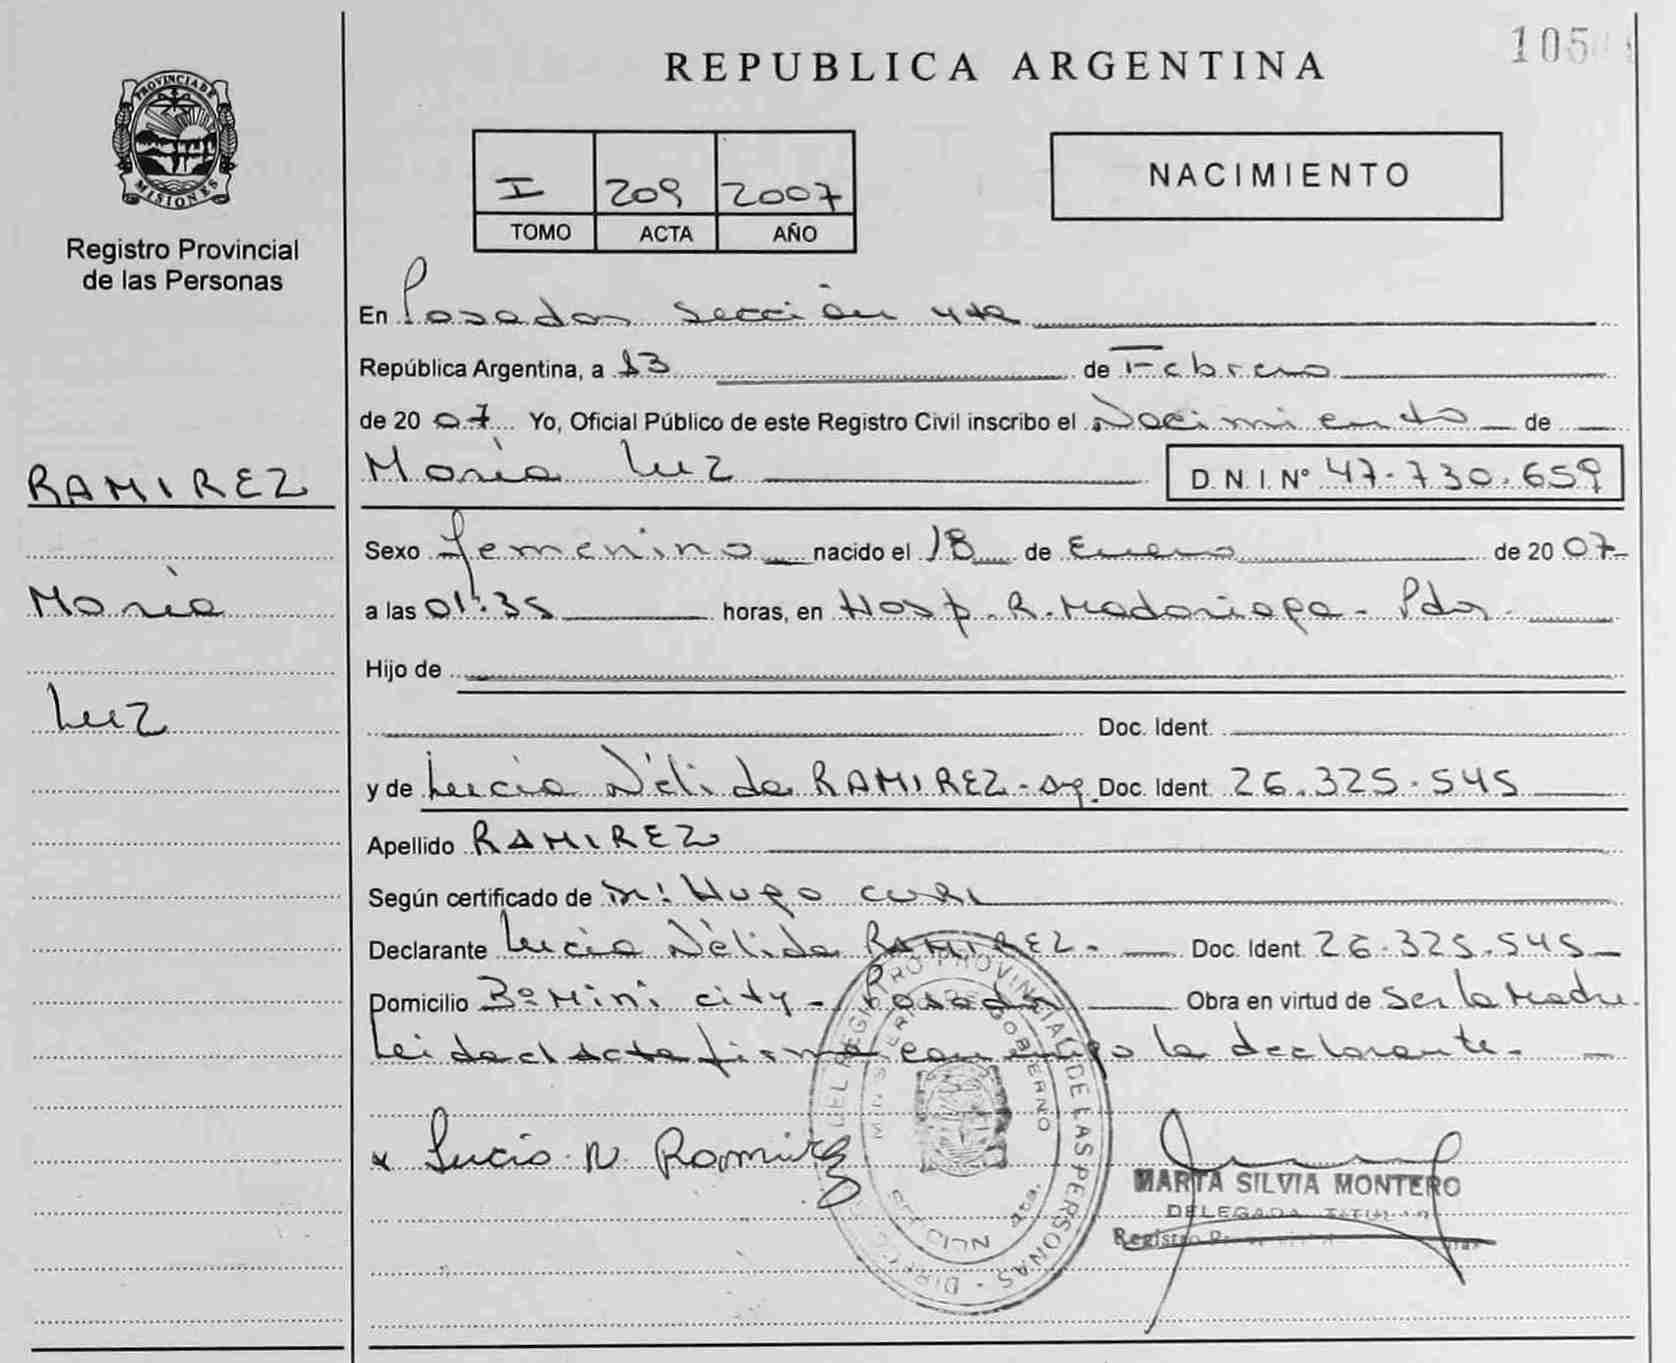 105
REPUBLICA ARGENTINA
PROVINCIA DE MISIONES
Registro Provincial
de las Personas
I 209 2007
TOMO ACTA AÑO
NACIMIENTO
En Posadas Sección 4ta
República Argentina, a 13 de Febrero
de 2007 Yo, Oficial Público de este Registro Civil inscribo el Nacimiento de
María Luz D.N.I. Nº 47.730.659
RAMIREZ
María
Luz
Sexo femenino nacido el 18 de Enero de 2007
a las 01:35 horas, en Hosp. R. Madariaga - Pdas.
Hijo de
Doc. Ident.
y de Lucía Nélida RAMIREZ - Doc. Ident. 26.325.545
Apellido RAMIREZ
Según certificado de Dr: Hugo CURI
Declarante Lucía Nélida RAMIREZ - Doc. Ident. 26.325.545
Domicilio Bº Mini city - Posadas Obra en virtud de Ser la Madre.
Leida el acta firma conmigo la declarante.
x Lucia N Ramirez
DEL REGISTRO PROVINCIAL DE LAS PERSONAS
MINISTERIO DE GOBIERNO
MARTA SILVIA MONTERO
DELEGADA TITULAR
Registro